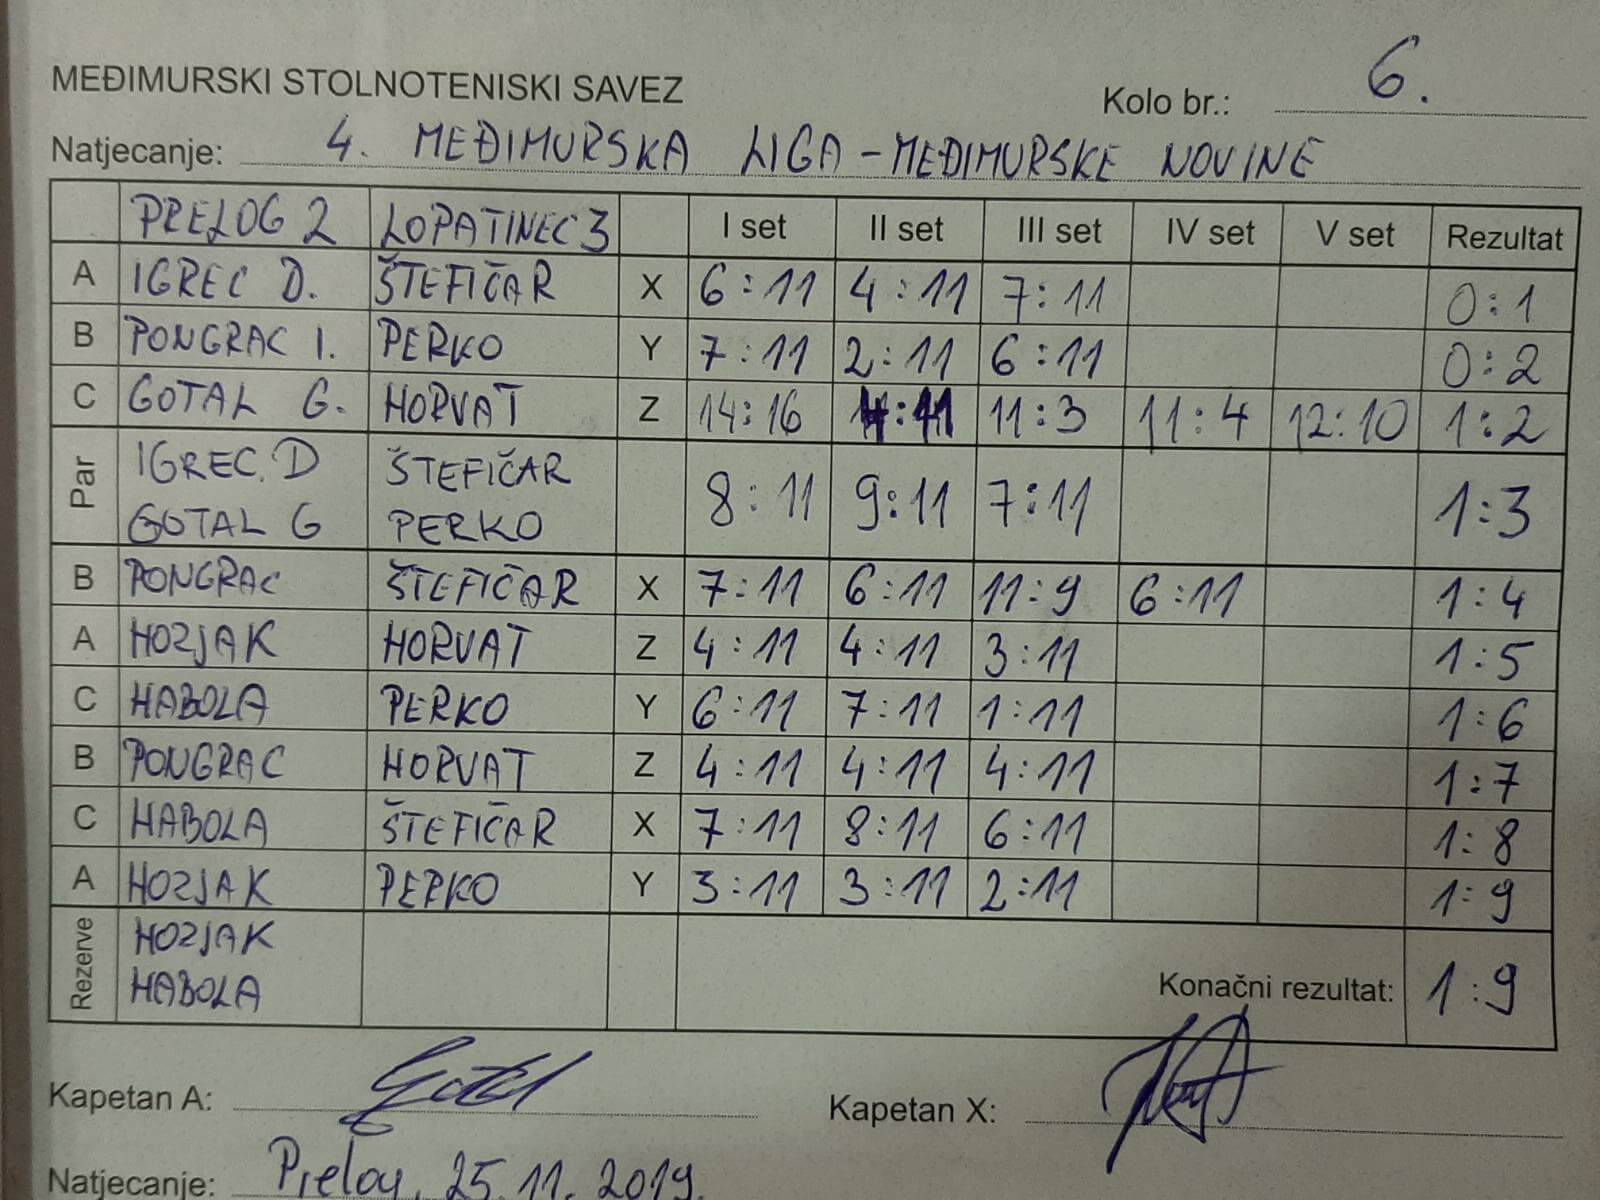 MEĐIMURSKI STOLNOTENISKI SAVEZ
Kolo br.: 6.
Natjecanje: 4. MEĐIMURSKA LIGA - MEĐIMURSKE NOVINE
PRELOG 2 LOPATINEC 3 I set II set III set IV set V set Rezultat
A IGREC D. ŠTEFIČAR X 6:11 4:11 7:11 0:1
B PONGRAC I. PERKO Y 7:11 2:11 6:11 0:2
C GOTAL G. HORVAT Z 14:16 11:3 11:4 12:10 1:2
Par IGREC. D ŠTEFIČAR 8:11 9:11 7:11 1:3
GOTAL G PERKO
B PONGRAC ŠTEFIČAR X 7:11 6:11 11:9 6:11 1:4
A HOZJAK HORVAT Z 4:11 4:11 3:11 1:5
C HABOLA PERKO Y 6:11 7:11 1:11 1:6
B PONGRAC HORVAT Z 4:11 4:11 4:11 1:7
C HABOLA ŠTEFIČAR X 7:11 8:11 6:11 1:8
A HOZJAK PERKO Y 3:11 3:11 2:11 1:9
Rezerve HOZJAK
HABOLA
Konačni rezultat: 1:9
Kapetan A: Kapetan X:
Natjecanje: Prelog, 25.11. 2019.